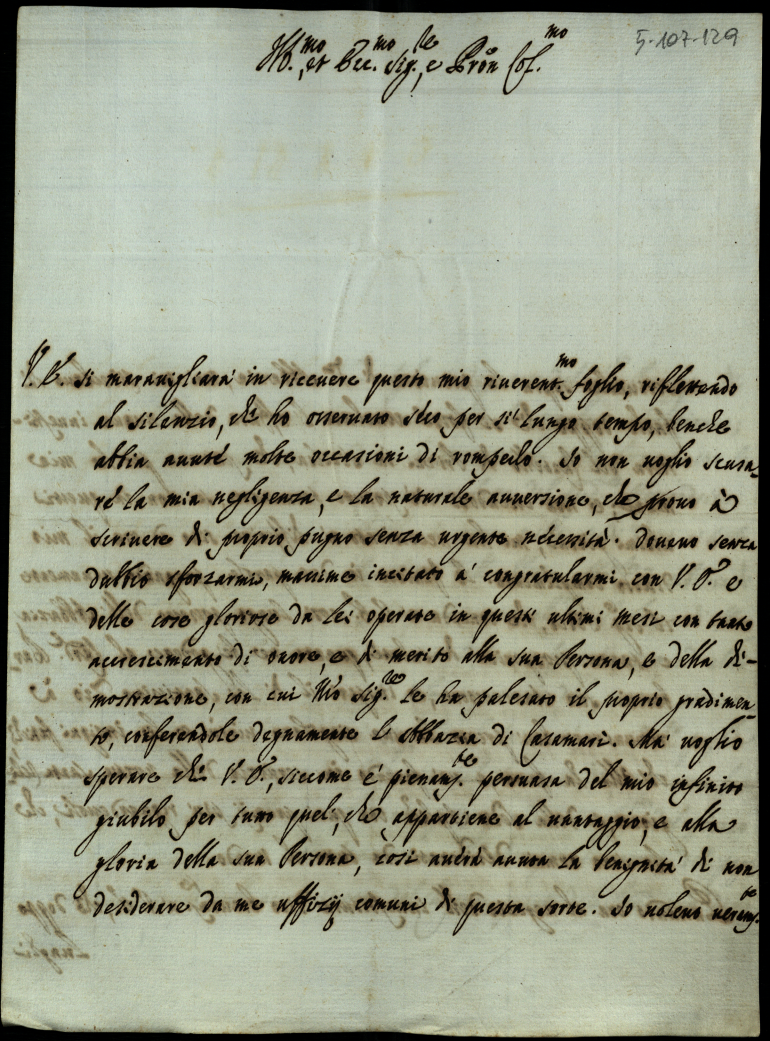 Ill.mo, et Ecc.mo Sig.re, e Pron Col.mo
5-107-129
V. E. si maravigliarà in ricevere questo mio riverent.mo foglio, riflettendo
al silenzio, che ho osservato seco per sì lungo tempo, benche
abbia avute molte occasioni di romperlo. Io non voglio scusa-
re la mia negligenza, e la naturale avversione, che provo à
scrivere di proprio pugno senza urgente necessità. Dovevo senza
dubbio sforzarmi, massime incitato a congratularmi con V. E. e
delle cose gloriose da lei operate in questi ultimi mesi con tanto
accrescimento di onore, e di merito alla sua Persona, e della di-
mostrazione, con cui N'ro Sig.re le ha palesato il proprio gradimen-
to, conferendole degnamente l'Abbazia di Casamari. Mà voglio
sperare che V. E., siccome è pienam.te persuasa del mio infinito
giubilo per tutto quel, che appartiene al vantaggio, e alla
gloria della sua Persona, così avrà avuta la benignità di non
desiderare da me uffizij comuni di questa sorte. Io volevo veram.te